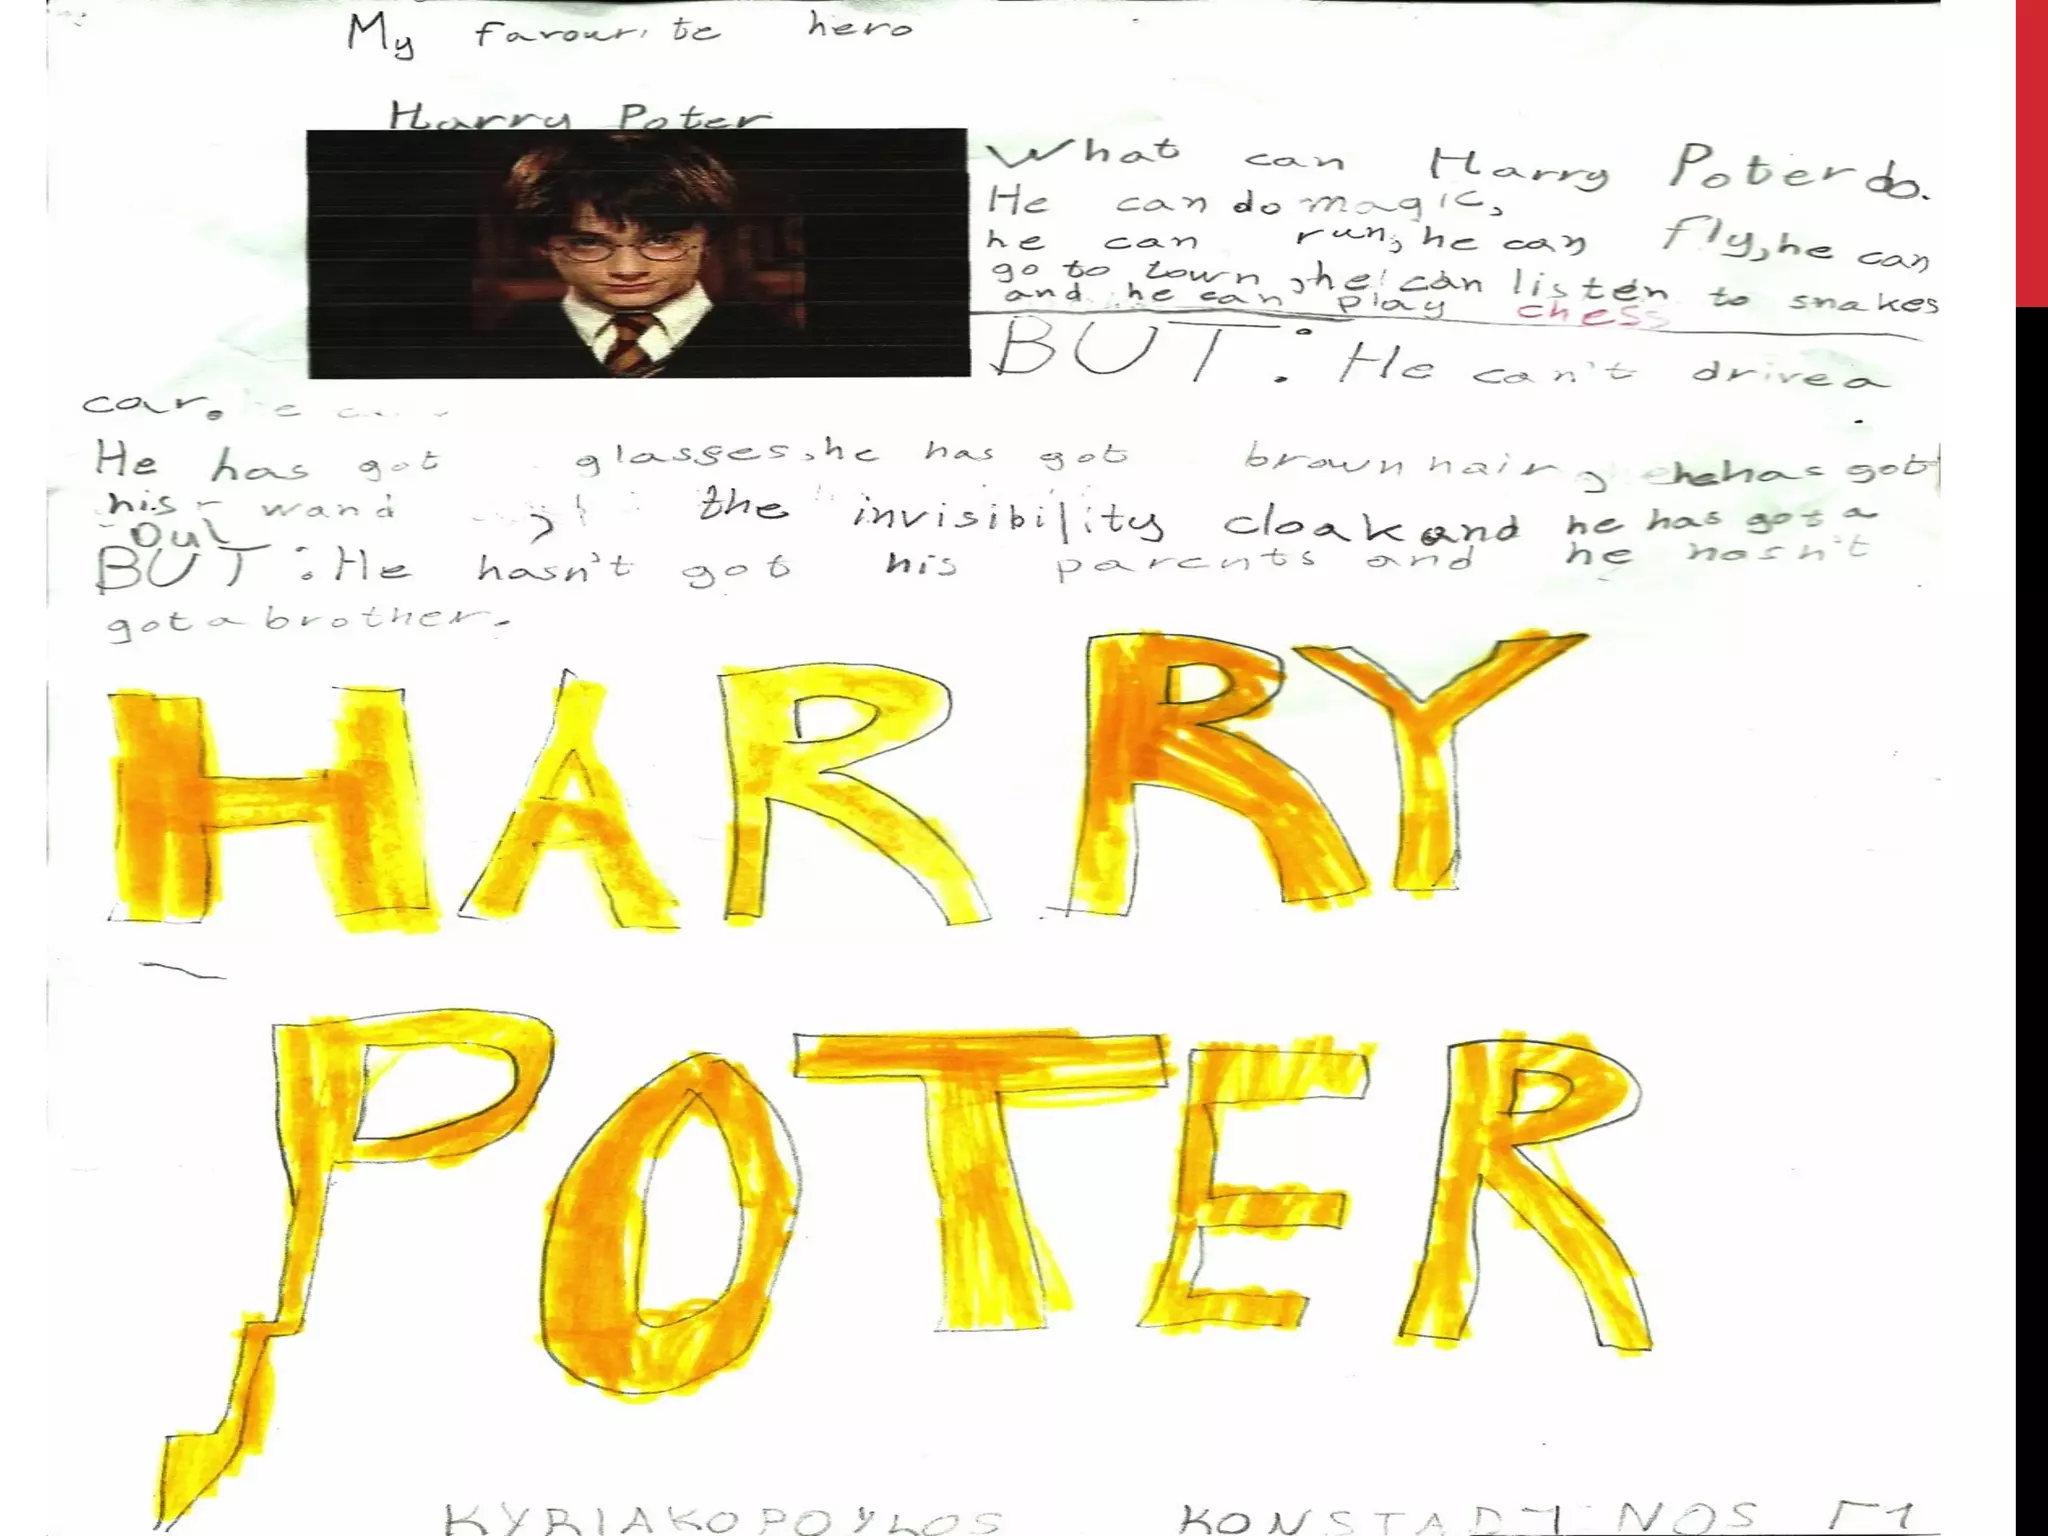 My favourite hero
Harry Poter
What can Harry Poter do.
He can do magic,
he can run, he can fly, he can
go to town, he can listen to snakes
and he can play chess
BUT: He can't drive a
car.
He has got glasses, he has got brown hair, he has got
his wand, the invisibility cloak and he has got a
Oul
BUT: He hasn't got his parents and he hasn't
got a brother.
HARRY
POTER
KYRIAKOPOYLOS KONSTADINOS Γ1